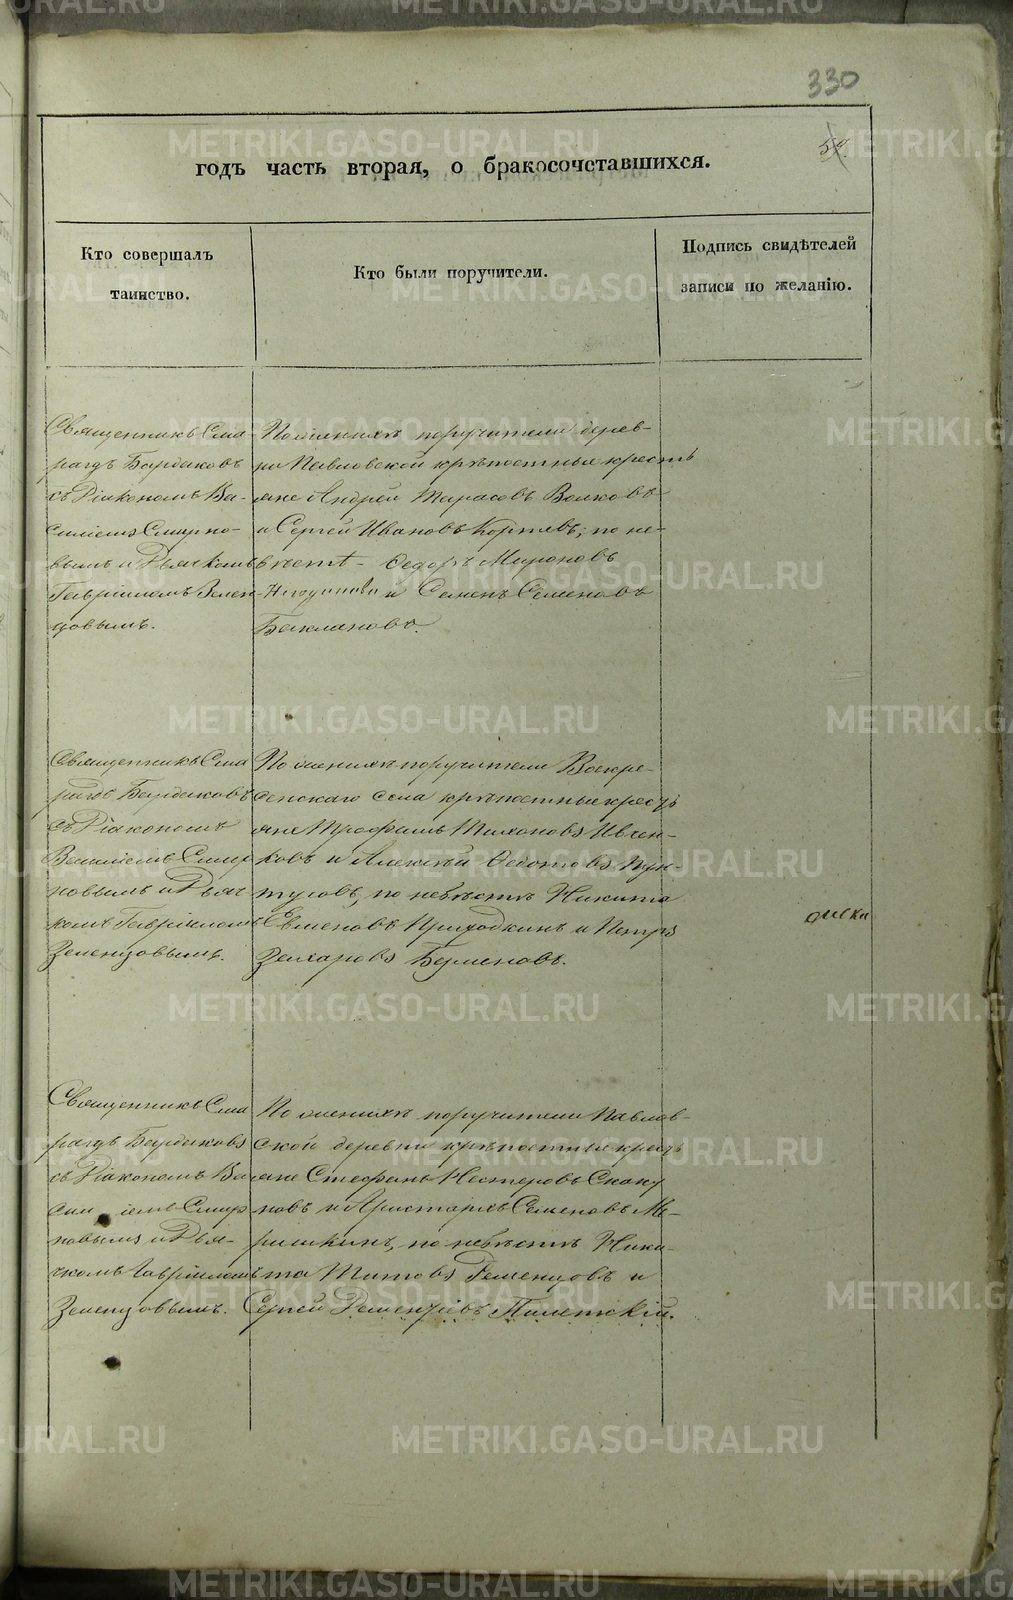 330
годъ часть вторая, о бракосочетавшихся.
Кто совершалъ
таинство.
Кто были поручители.
Подпись свидѣтелей
записи по желанію.
Священникъ Сма-
рагдъ Бардаковъ
съ Діакономъ Ва-
силіемъ Смирно-
вымъ и Дьячкомъ
Гавріиломъ Зелен-
цовымъ.
По женихѣ поручители дерев-
ни Павловской крѣпостные кресть
яне Андрей Тарасовъ Волковъ
и Сергей Ивановъ; по не-
вѣстѣ - Ѳедоръ Мироновъ
и Семенъ Семеновъ
Баклановъ.
Священникъ Сма
рагдъ Бардаковъ
съ Діакономъ
Василіемъ Смир
новымъ и Дьяч
комъ Гавріиломъ
Зеленцовымъ.
По женихѣ поручители Воскре-
сенскаго села крѣпостные кресть
яне Трофимъ Тихоновъ Ивлен-
ковъ и Алексѣй Ѳедотовъ
по невѣстѣ Никита
Евменовъ Приходкинъ и Петръ
Захаровъ
Священникъ Сма
рагдъ Бардаковъ
съ Діакономъ Ва
силіемъ Смир
новымъ и Дья-
чкомъ Гавріиломъ
Зеленцовымъ.
По женихѣ поручители Павлов-
ской деревни крѣпостные кресть
яне Стефанъ Нестеровъ Скаку
новъ и Аристархъ Семеновъ Ме-
ришкинъ, по невѣстѣ Ники-
та Титовъ и
Сергей Палетскій.
METRIKI.GASO-URAL.RU